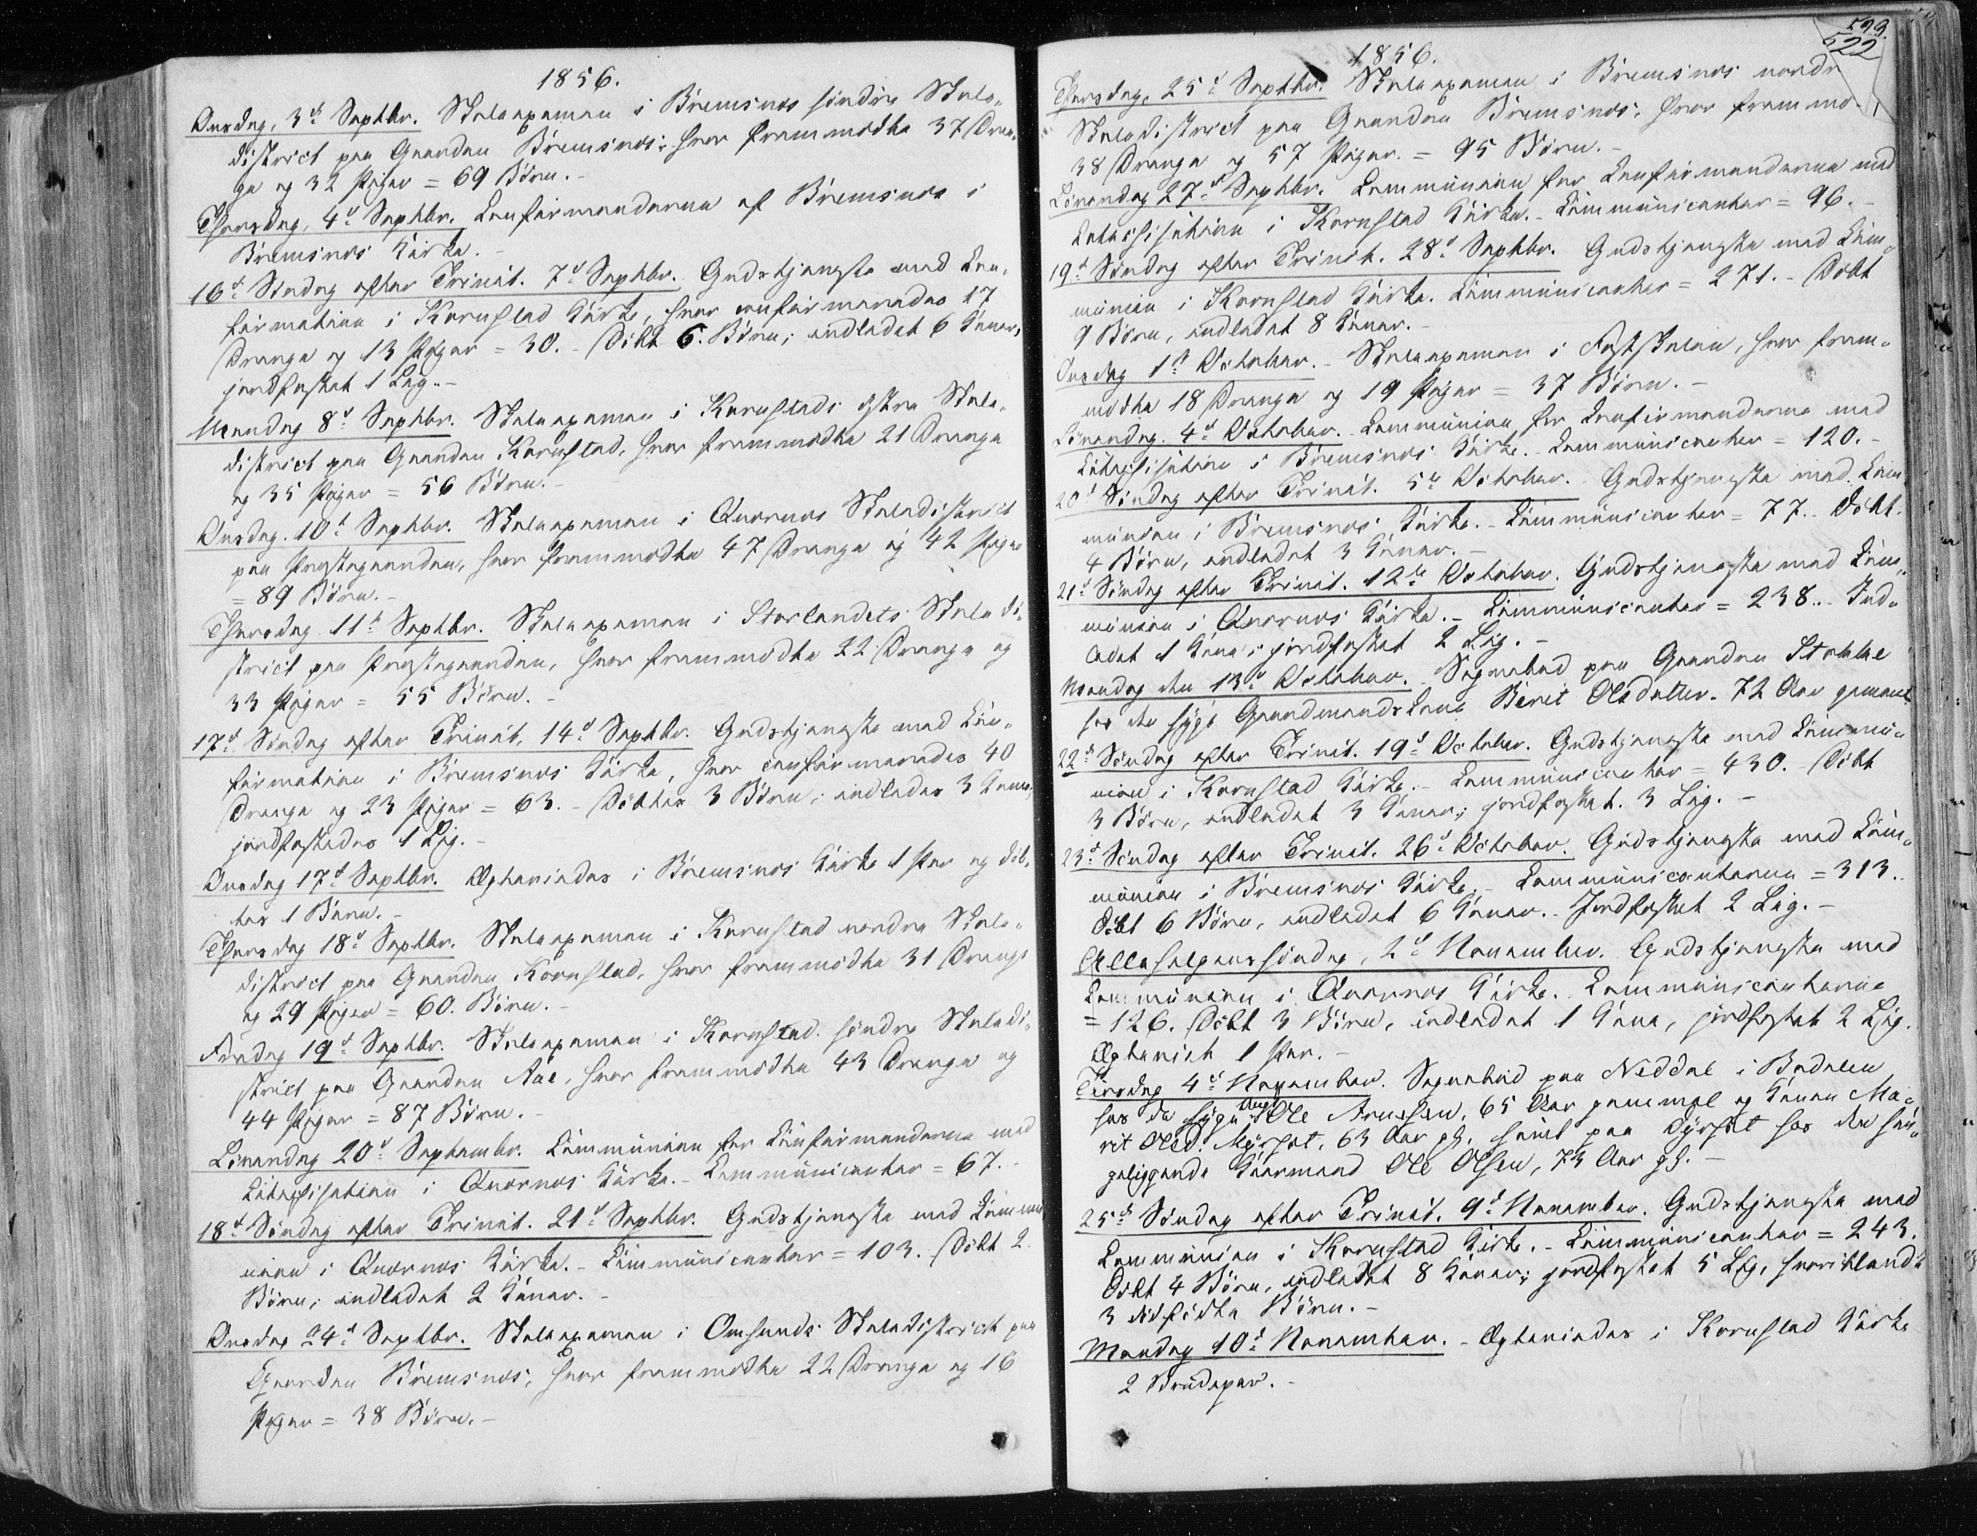 1856.
Onsdag, 3d Septbr. Skoleexamen i Bremsnæs søndre Skole-
district paa Gaarden Bremsnæs; hvor fremmødte 37 Dren-
ge og 32 Piger = 69 Børn.-
Thorsdag, 4d Septbr. Confirmanderne af Bremsnæs i
Bremsnæs Kirke.-
16d Søndag efter Trinit. 7d Septbr. Gudstjeneste med Con-
firmation i Kornstad Kirke, hvor confirmeredes 17
Drenge og 13 Piger = 30.- Døbt 6. Børn; indledet 6 Koner,
jordfæstet 1 Lig.-
Mandag 8d Septbr. Skoleexamen i Kornstads østre Skole-
district paa Gaarden Kornstad, hvor fremmødte 21 Drenge
og 35 Piger = 56 Børn.-
Onsdag. 10d Septbr. Skoleexamen i Qværnæs Skoledistrict
paa Præstegaarden, hvor fremmødte 47 Drenge og 42 Piger
= 89 Børn.-
Thorsdag 11d Septbr. Skoleexamen i Storlandets Skoledi-
strict paa Præstegaarden, hvor fremmødte 22 Drenge og
33 Piger = 55 Børn.-
17d Søndag efter Trinit. 14d Septbr. Gudstjeneste med Con-
firmation i Bremsnæs Kirke, hvor confirmeredes 40
Drenge og 23 Piger = 63.- Døbtes 3 Børn; indledes 3 Koner,
jordfæstedes 1 Lig.-
Onsdag 17d Septbr. Ægteviedes i Bremsnæs Kirke 1 Par og døb-
tes 1 Barn.-
Thorsdag 18d Septbr. Skoleexamen i Kornstad nordre Skole-
district paa Gaarden Kornstad, hvor fremmødte 31 Drenge
og 29 Piger = 60. Børn.-
Fredag 19d Septbr. Skoleexamen i Kornstad søndre Skoledi-
strict paa Gaarden Aae, hvor fremmødte 43 Drenge og
44 Piger = 87 Børn.-
Løverdag 20d September. Communion for Confirmanderne med
Catechisation i Qværnæs Kirke.- Communicanter = 67.-
18d Søndag efter Trinit. 21d Septbr. Gudstjeneste med Commu-
nion i Qværnæs Kirke.- Communicanter = 103. Døbt 2
Børn; indledet 2 Koner.-
Onsdag 24d Septbr. Skoleexamen i Omsunds Skoledistrict paa
Gaarden Bremsnæs; hvor fremmødte 22 Drenge og 16
Piger = 38 Børn.-
523.
522
1856.
Thorsdag, 25d Septbr. Skoleexamen i Bremsnæs nordr
Skoledistrict paa Gaarden Bremsnæs; hvor fremmø-
38 Drenge og 57 Piger. = 95 Børn.-
Løverdag 27d Septbr. Communion for Confirmanderne med
Catechisation i Kornstad Kirke.- Communicanter = 96.-
19d Søndag efter Trinit. 28d Septbr. Gudstjeneste med Com-
munion i Kornstad Kirke. Communicanter = 271.- Døbt
9 Børn, indledet 8 Koner.-
Onsdag 1st October.- Skoleexamen i Fastskolen, hvor frem-
mødte 18 Drenge og 19 Piger = 37 Børn.-
Løverdag. 4d October. Communion for Confirmanderne med
Catechisation i Bremsnæs Kirke.- Communicanter = 120.-
20d Søndag efter Trinit. 5te October. Gudstjeneste med Com-
munion i Bremsnæs Kirke.- Communicanter = 77.- Døbt.
4 Børn, indledet 3 Koner.-
21d Søndag efter Trinit. 12te October. Gudstjeneste med Com-
munion i Qværnæs Kirke.- Communicanter = 238.- Ind-
ledet 1 Kone; jordfæstet 2 Lig.-
Mandag den 13d October. Sognebud paa Gaarden Strømme
hos den syge Gaardmandskone Berit Olsdatter. 72 Aar gammel
22d Søndag efter Trinit. 19d October. Gudstjeneste med Commu-
nion i Kornstad Kirke.- Communicanter = 430. Døbt
3 Børn, indledet 3 Koner; jordfæstet. 3 Lig.-
23d Søndag efter Trinit. 26d October. Gudstjeneste med Com-
munion i Bremsnæs Kirke.- Communicanterne = 313.
Døbt 6 Børn, indledet 6 Koner.- Jordfæstet 2 Lig.-
Allehelgenssøndag, 2d November. Gudstjeneste med
Communion i Qværnæs Kirke. Communicanterne
= 126. Døbt 3 Børn, indledet 1 Kone, jordfæstet 2 Lig.
Ægteviet 1 Par.-
Tirsdag 4d November. Sognebud paa Neddal i Badalen
hos de syge Ole Arnesen, 65 Aar gammel og Konen Ma-
rit Olsd. 63 Aar gl., samt paa hos den sen-
geliggende Kaarmand Ole Olsen, 73 Aar gl.-
25d Søndag efter Trinit. 9d November. Gudstjeneste med
Communion i Kornstad Kirke.- Communicanter = 243.
Døbt 4 Børn, indledet 8 Koner; jordfæstet 5 Lig, hvoriblandt
3 dødfødte Børn.-
Mandag 10d November.- Ægteviedes i Kornstad Kirke
2 Brudepar.-